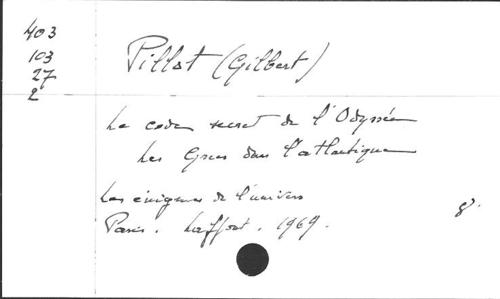 403
103
27
2
Pillot (Gilbert)
Le code secret de l'Odyssée
Les Grecs dans l'atlantique
Les énigmes de l'univers
Paris. Laffont. 1969.
8°